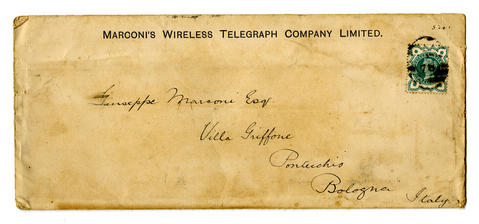 MARCONI'S WIRELESS TELEGRAPH COMPANY LIMITED.
Giuseppe Marconi Esq.
Villa Griffone
Pontecchio
Bologna
Italy.